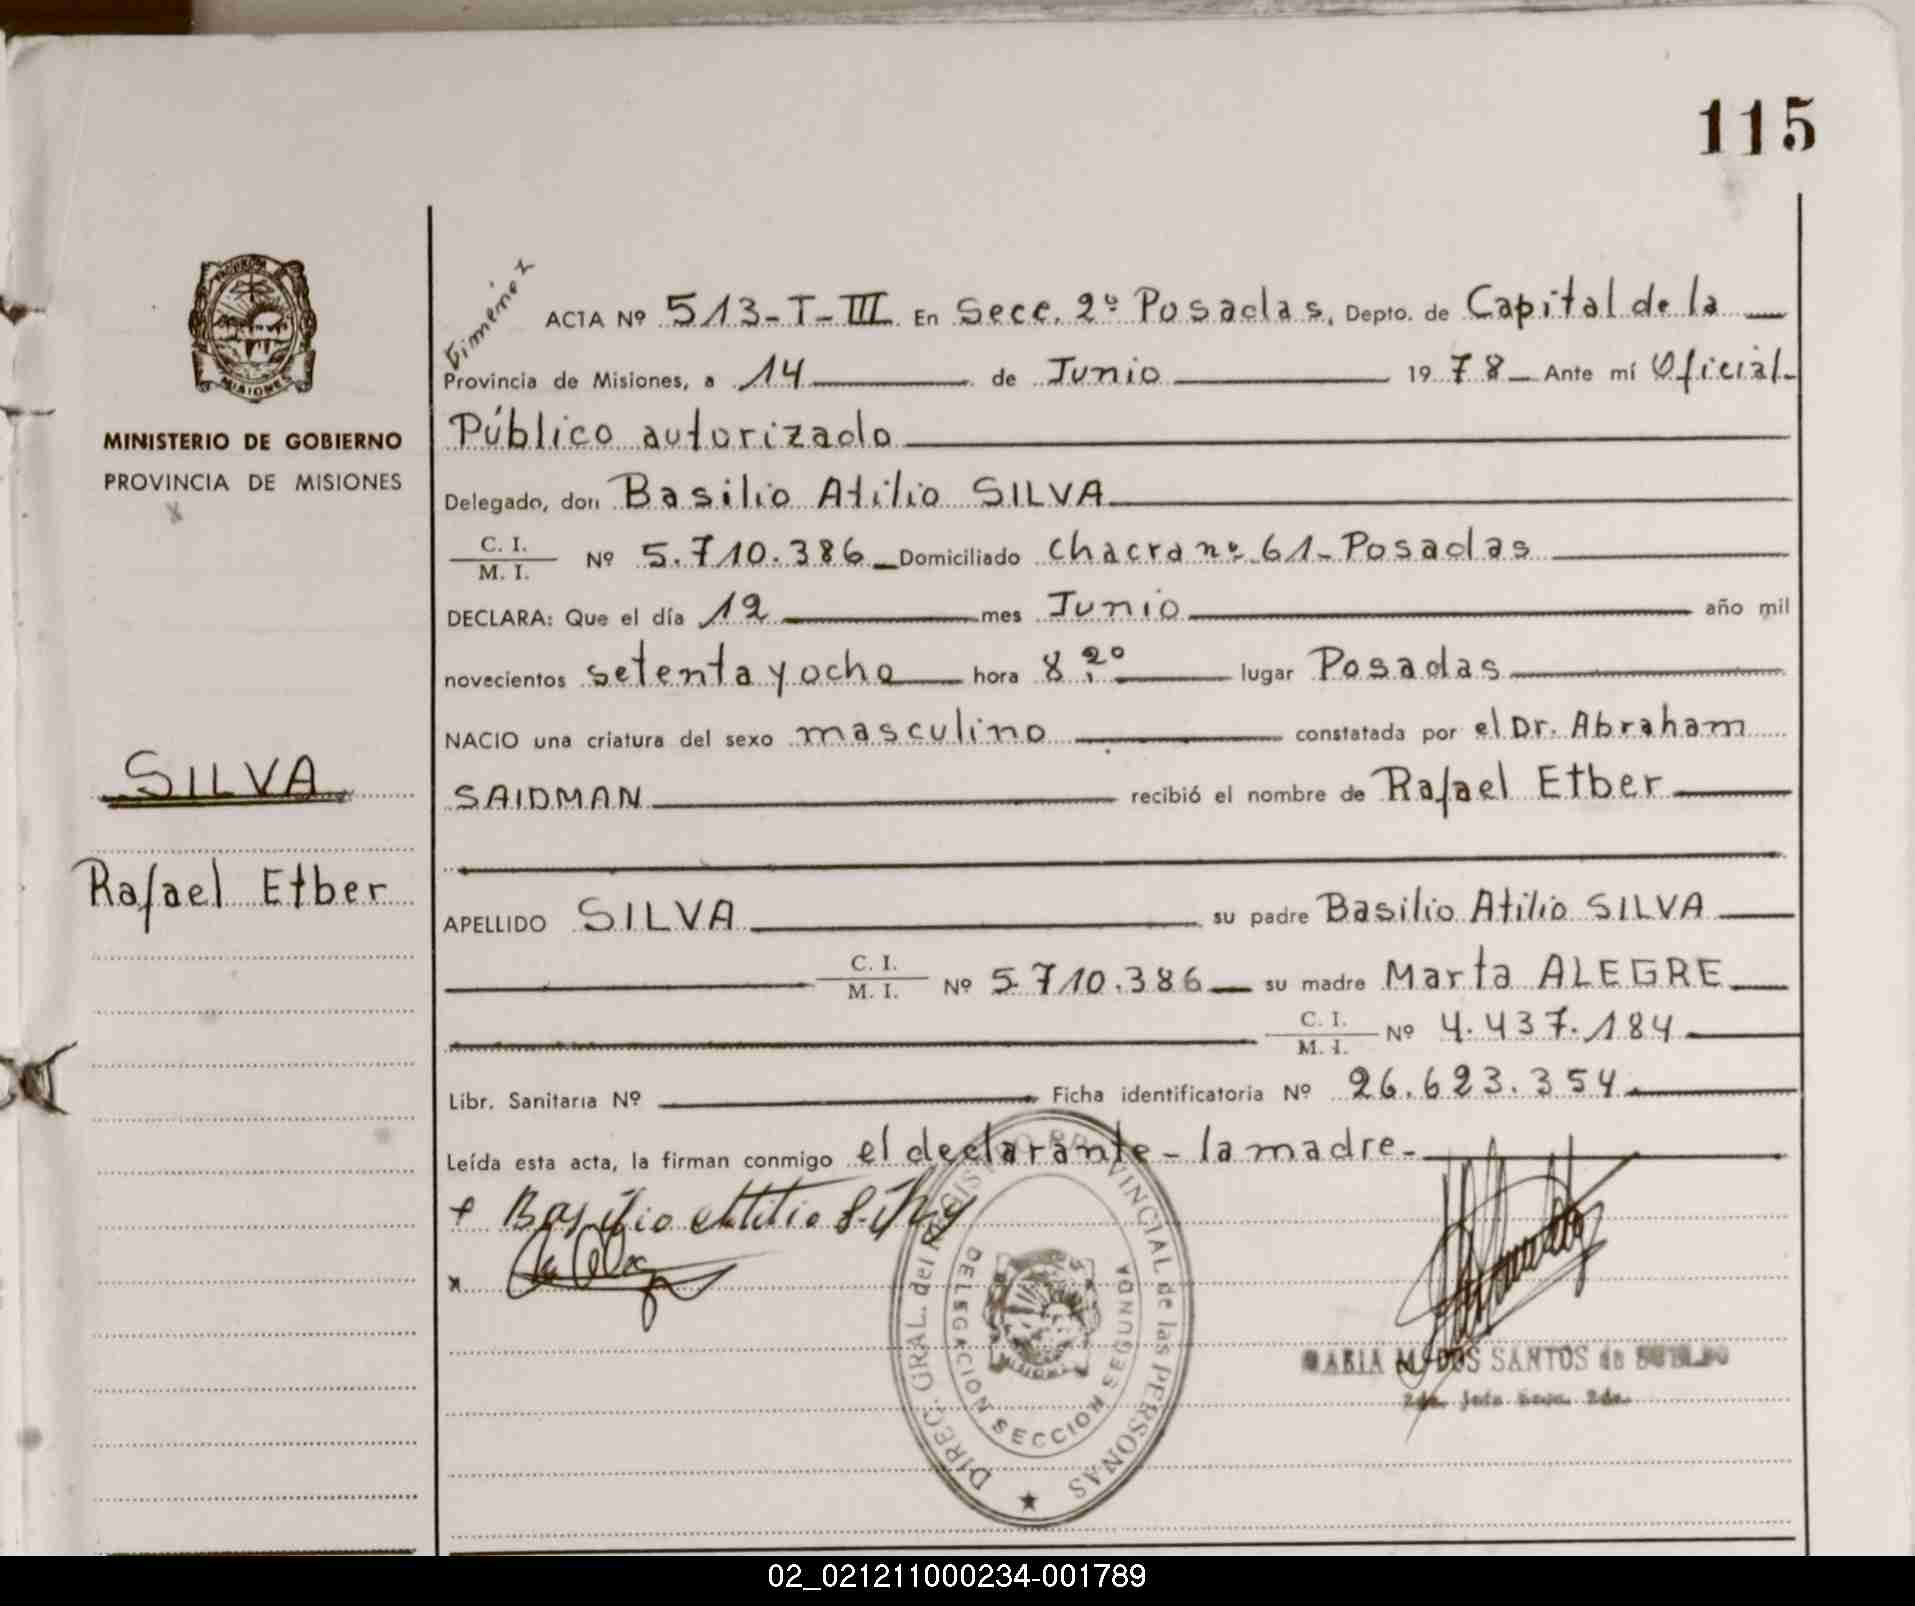 115
Gimenez
ACTA Nº 513-T-III En Secc. 2º Posadas, Depto. de Capital de la
Provincia de Misiones, a 14 de Junio 1978 Ante mí Oficial
Público autorizado
Delegado, don Basilio Atilio SILVA
C. I.
M. I. Nº 5.710.386 Domiciliado Chacra nº 61-Posadas
DECLARA: Que el día 12 mes Junio año mil
novecientos setenta y ocho hora 8.20 lugar Posadas
NACIO una criatura del sexo masculino constatada por el Dr. Abraham
SAIDMAN recibió el nombre de Rafael Etber
APELLIDO SILVA su padre Basilio Atilio SILVA
C. I.
M. I. Nº 5.710.386 su madre Marta ALEGRE
C. I.
M. I. Nº 4.437.184
Libr. Sanitaria Nº Ficha identificatoria Nº 26.623.354
Leída esta acta, la firman conmigo el declarante - la madre-
Basilio Atilio Silva
MINISTERIO DE GOBIERNO
PROVINCIA DE MISIONES
MISIONES
SILVA
Rafael Etber
DIREC. GRAL. del REGISTRO PROVINCIAL de las PERSONAS
DELEGACION SECCION SEGUNDA
MARIA M. DOS SANTOS de
2da. Jefe Secc. 2da.
02_021211000234-001789